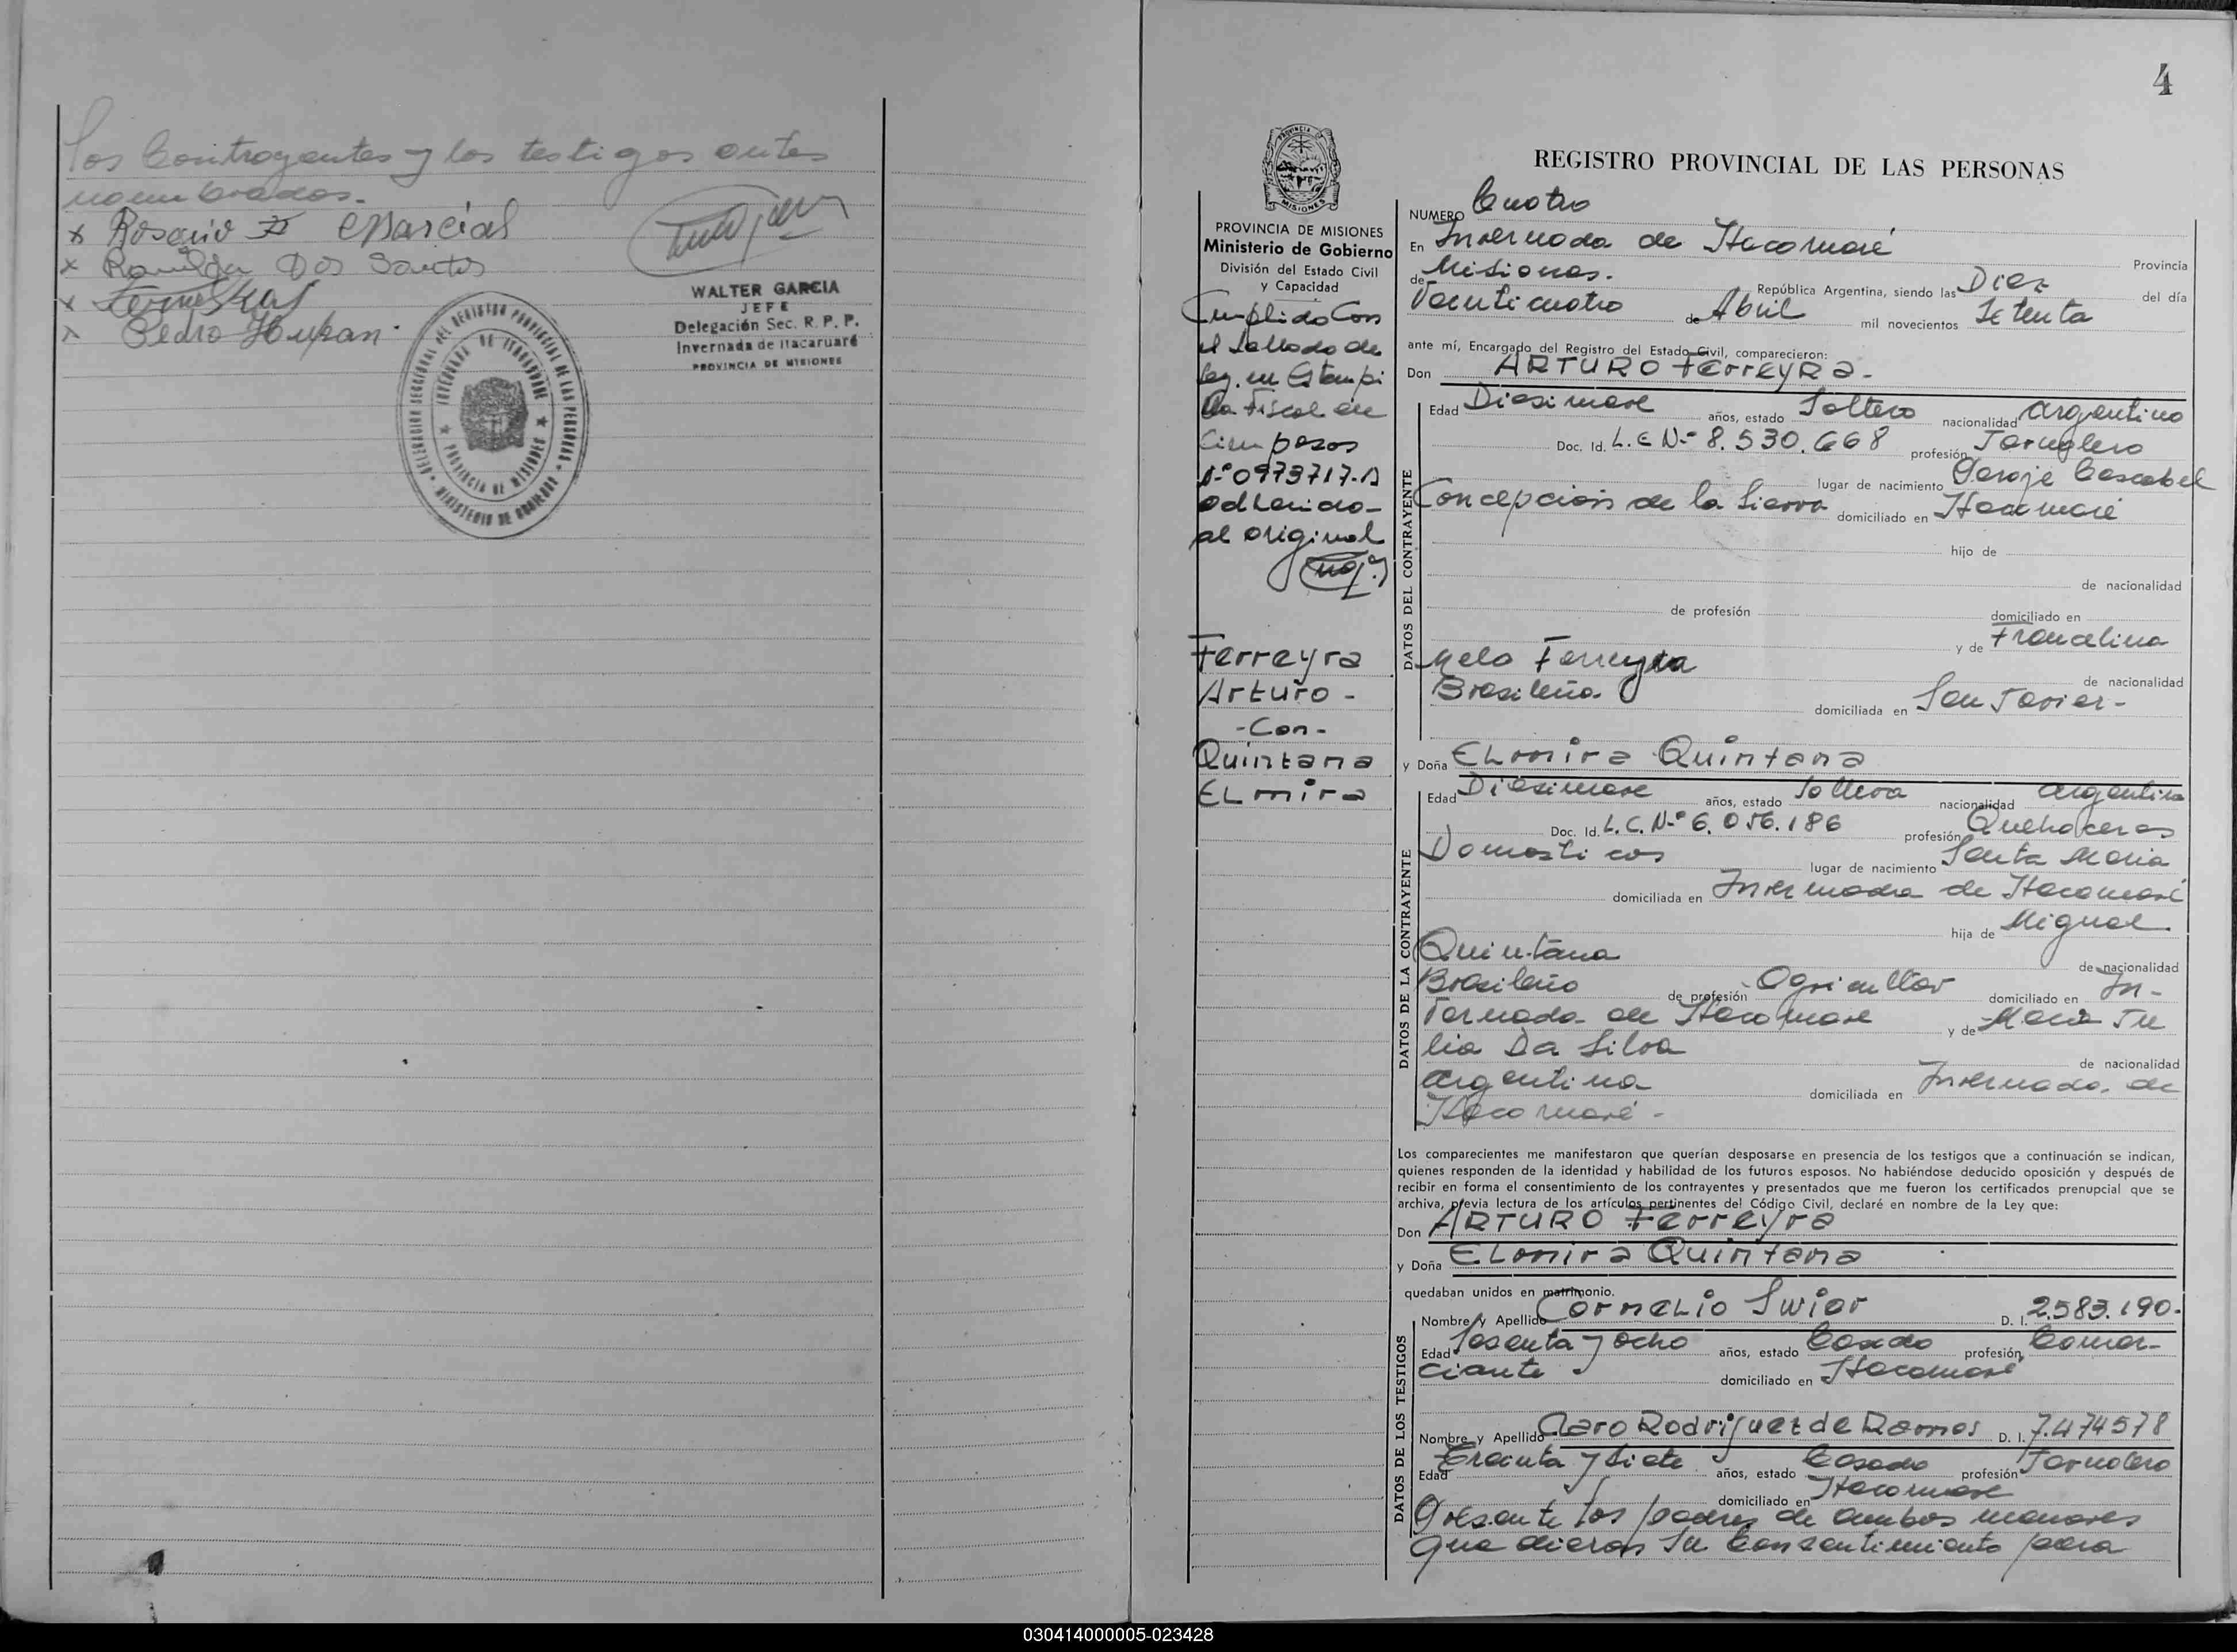 Los Contrayentes y los testigos antes
nombrados.
x Rosario F Marcial
x Ramildu Dos Santos
x
x Pedro Hupan.
WALTER GARCIA
JEFE
Delegación Sec. R. P. P.
Invernada de Itacaruaré
PROVINCIA DE MISIONES
DELEGACION SECCIONAL DEL REGISTRO PROVINCIAL DE LAS PERSONAS
INVERNADA DE ITACARUARE
PROVINCIA DE MISIONES
MINISTERIO DE GOBIERNO
4
PROVINCIA
MISIONES
PROVINCIA DE MISIONES
Ministerio de Gobierno
División del Estado Civil
y Capacidad
Cumplido Con
el Sellado de
ley. en Estampi
lla Fiscal de
Cien pesos
Nº 0973717-A
adherido-
al original
Ferreyra
Arturo -
-Con-
Quintana
ELmira
REGISTRO PROVINCIAL DE LAS PERSONAS
NUMERO Cuatro
En Invernada de Itacaruaré Provincia
de Misiones. República Argentina, siendo las Diez del día
Veinticuatro de Abril mil novecientos Setenta
ante mí, Encargado del Registro del Estado Civil, comparecieron:
Don ARTURO FerreyRa-
DATOS DEL CONTRAYENTE
Edad Diesinueve años, estado Soltero nacionalidad Argentino
Doc. Id. L.E Nº 8.530.668 profesión Jornalero
lugar de nacimiento Paraje Cascabel
Concepción de la Sierra domiciliado en Itacaruaré
hijo de
de nacionalidad
de profesión domiciliado en
y de Francelina
Melo Ferreyra de nacionalidad
Brasileña domiciliada en San Javier-
y Doña ELmira Quintana
DATOS DE LA CONTRAYENTE
Edad Diesinueve años, estado Soltera nacionalidad Argentina
Doc. Id. L.C. Nº 6.056.186 profesión Quehaceres
Domesticos lugar de nacimiento Santa Maria
domiciliada en Invernada de Itacaruaré
hija de Miguel
Quintana de nacionalidad
Brasileño de profesión Agricultor domiciliado en In-
vernada de Itacaruare y de Maria Ju
lia Da Silva de nacionalidad
Argentina domiciliada en Invernada de
Itacaruaré-
Los comparecientes me manifestaron que querían desposarse en presencia de los testigos que a continuación se indican,
quienes responden de la identidad y habilidad de los futuros esposos. No habiéndose deducido oposición y después de
recibir en forma el consentimiento de los contrayentes y presentados que me fueron los certificados prenupcial que se
archiva, previa lectura de los artículos pertinentes del Código Civil, declaré en nombre de la Ley que:
Don ARTURO Ferreyra
y Doña ELmira Quintana
quedaban unidos en matrimonio.
DATOS DE LOS TESTIGOS
Nombre y Apellido CorneLio Swior D. I. 2.583.190.
Edad Sesenta y ocho años, estado Casado profesión Comer-
ciante domiciliado en Itacaruaré
Nombre y Apellido Claro Rodriguez de Ramos D. I. 7.474578
Edad Treinta y Siete años, estado Casado profesión Jornalero
domiciliado en Itacaruare
Presente los padres de ambos menores
que dieron su Consentimiento para
030414000005-023428